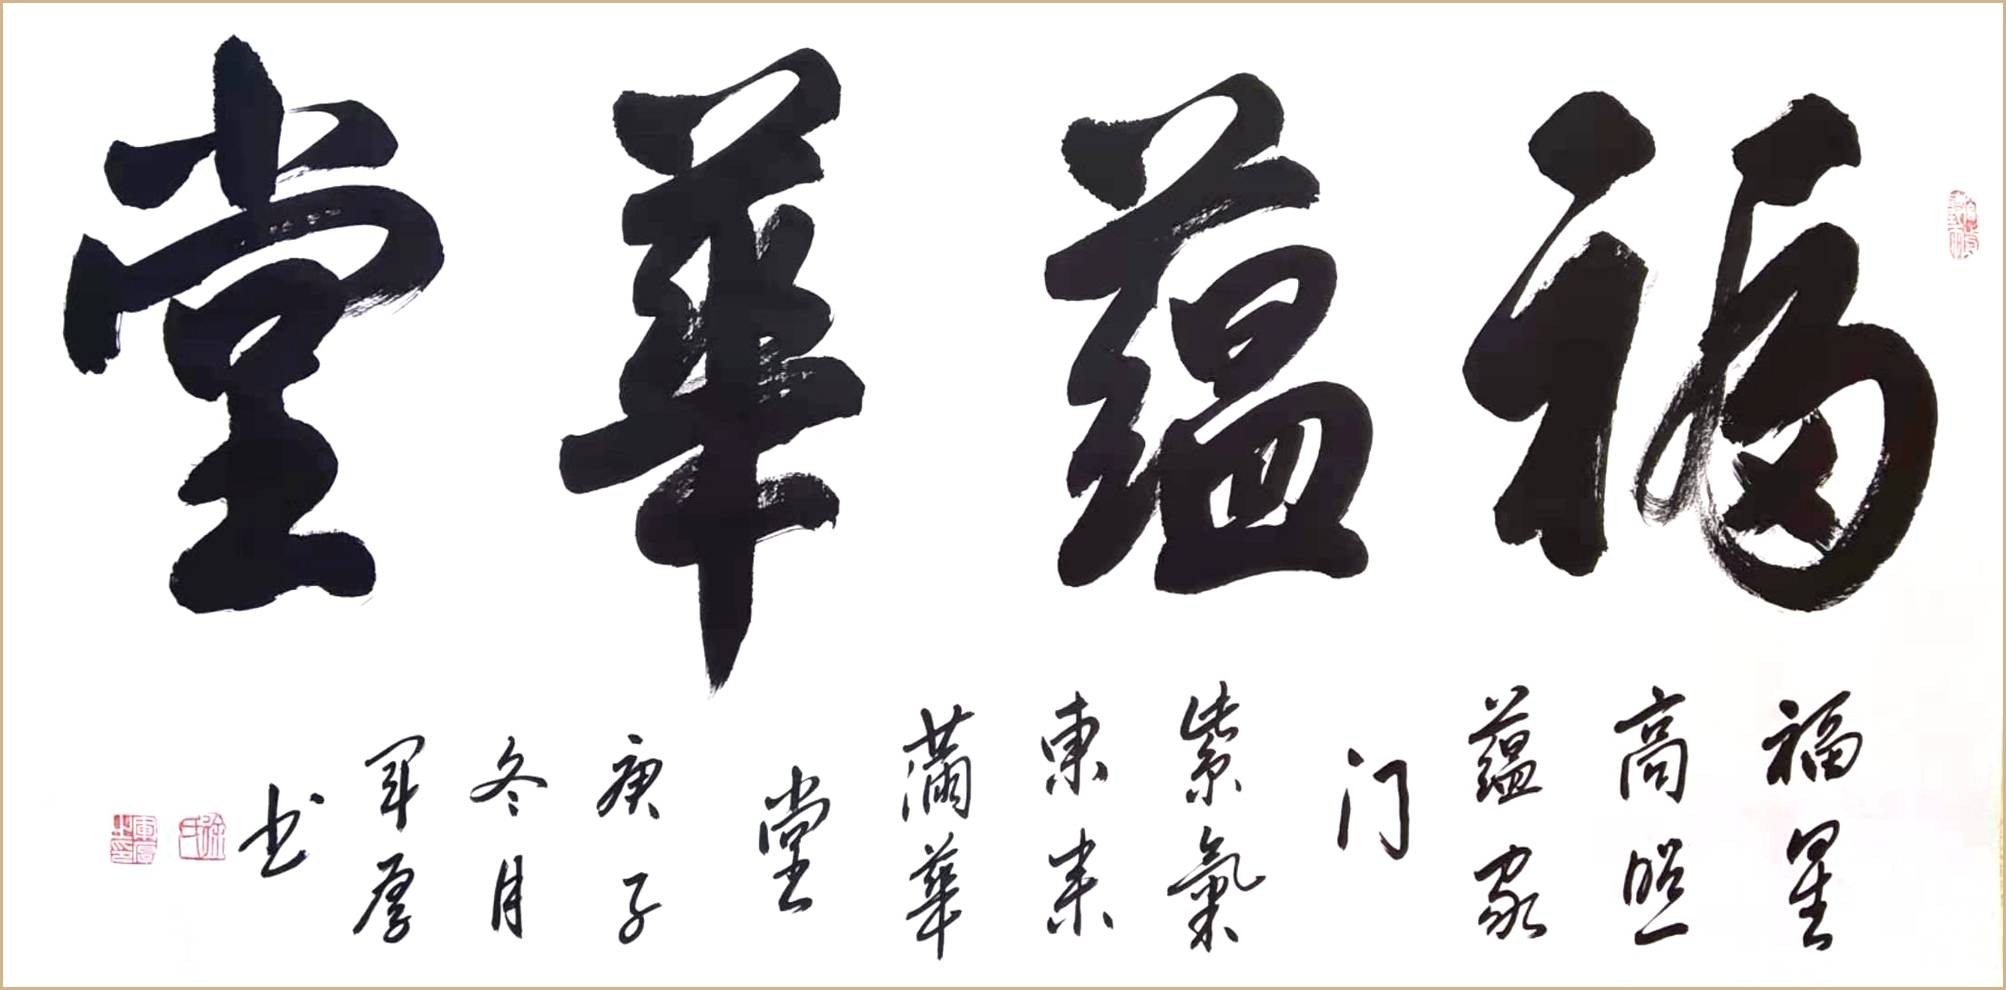 福蘊華堂
福星
高照
蘊家
门
紫氣
東来
滿華
堂
庚子
冬月
军厚
书
徐氏